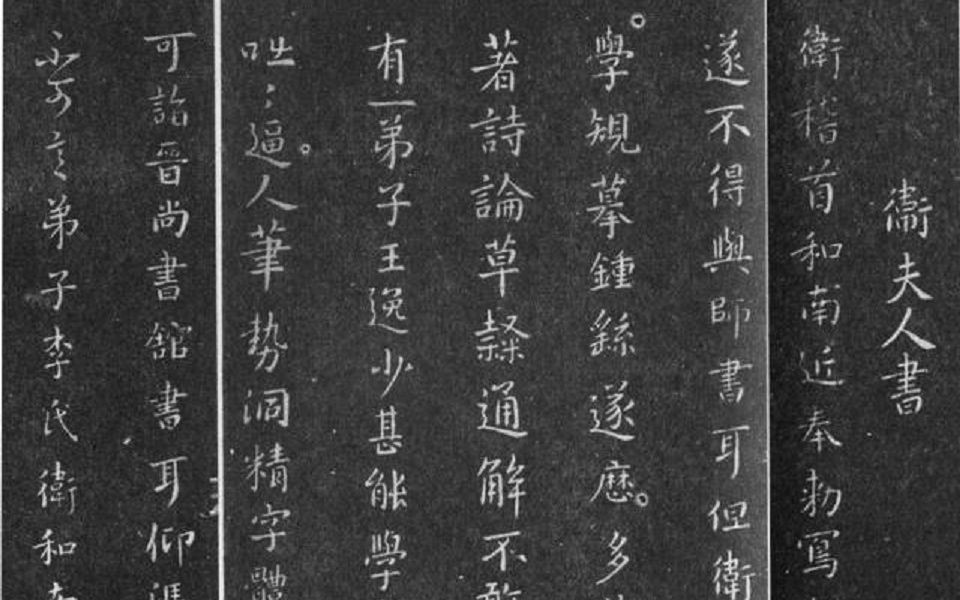 衛夫人書
衛稽首和南近奉勅寫
遂不得與師書耳但衛
學規摹鍾繇遂歷多
著詩論草隸通解不敢
有一弟子王逸少甚能學
咄咄逼人筆勢洞精字體
可詣晉尚書館書耳仰憑
弟子李氏衛和南